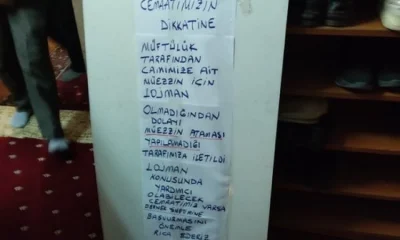 CEMAATİMİZİN
DİKKATİNE
MÜFTÜLÜK
TARAFINDAN
CAMİMİZE AİT
MÜEZZİN İÇİN
LOJMAN
OLMADIĞINDAN
DOLAYI
MÜEZZİN ATAMASI
YAPILAMADIĞI
TARAFIMIZA İLETİLDİ
LOJMAN
KONUSUNDA
YARDIMCI
OLABİLECEK
CEMAATİMİZ VARSA
BAŞVURMASINI
ÖNEMLE
RİCA EDERİZ